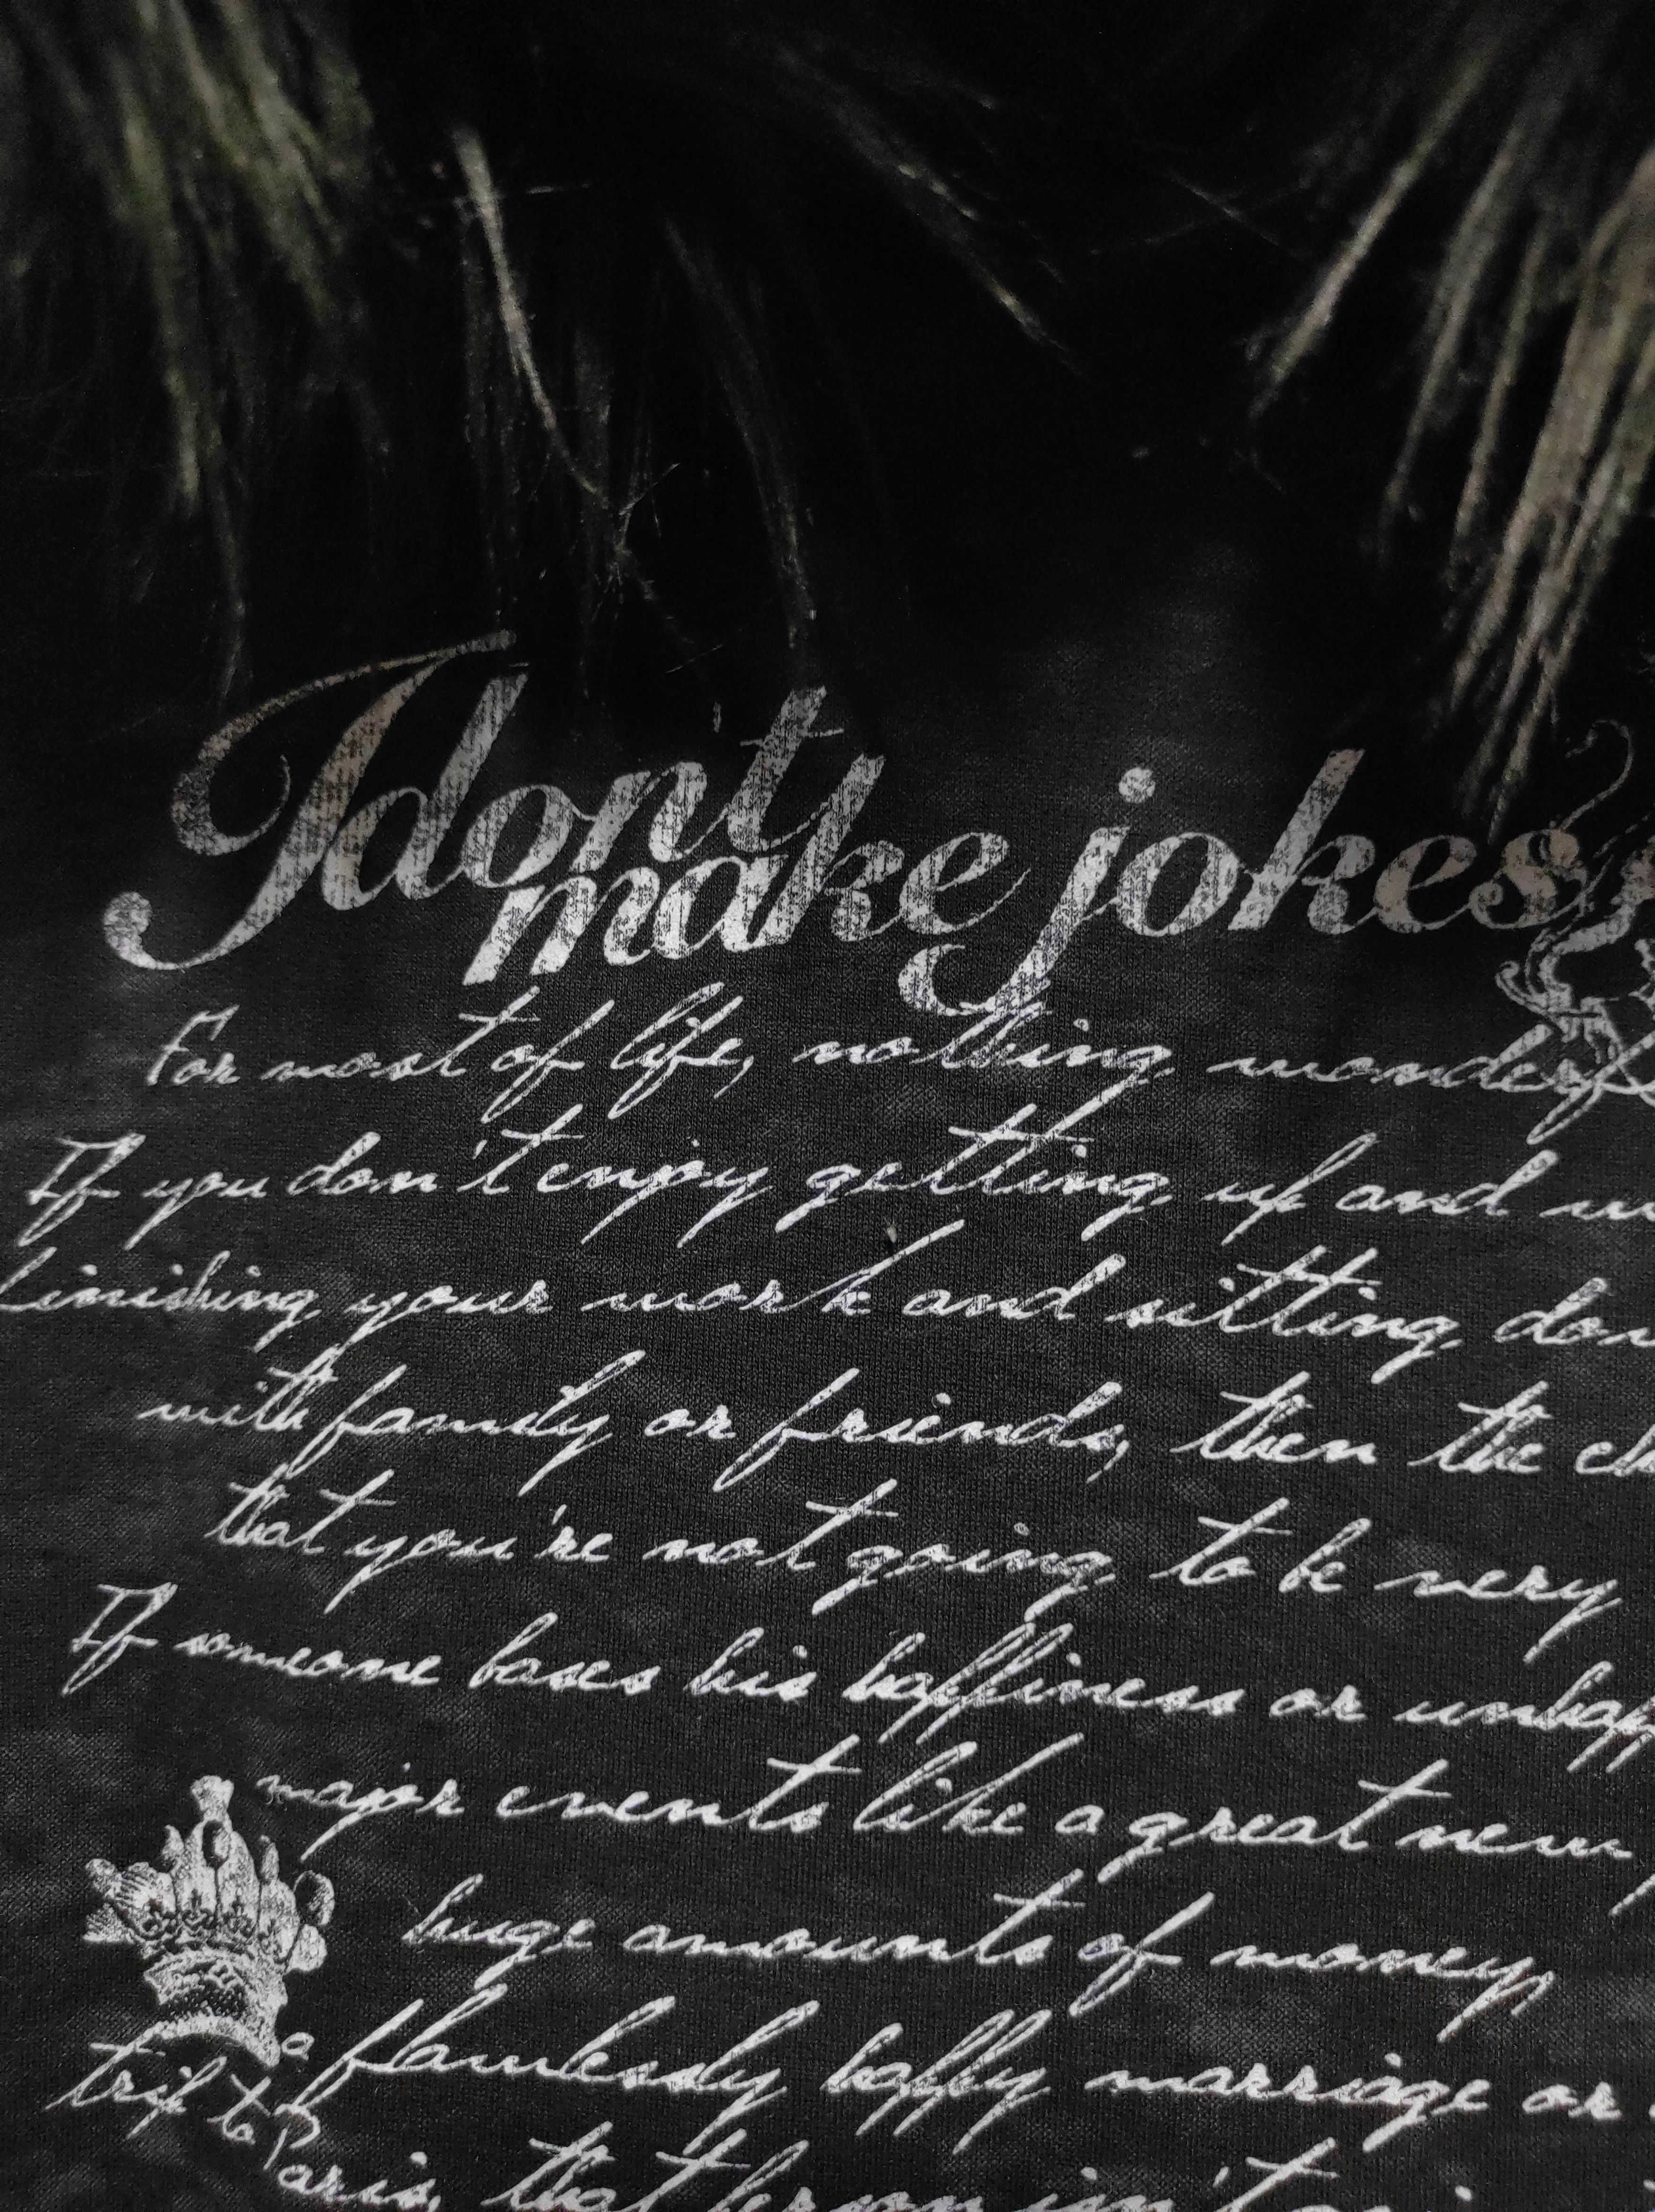 I don't
make jokes
For most of life, nothing wonderf
If you don't enjoy getting up and w
finishing your work and sitting dow
with family or friends, then the ch
that you're not going to be very
If someone bases his happiness or unhapp
major events like a great new
huge amounts of money,
a flawlessly happy marriage or
trip to Paris, that person isn't